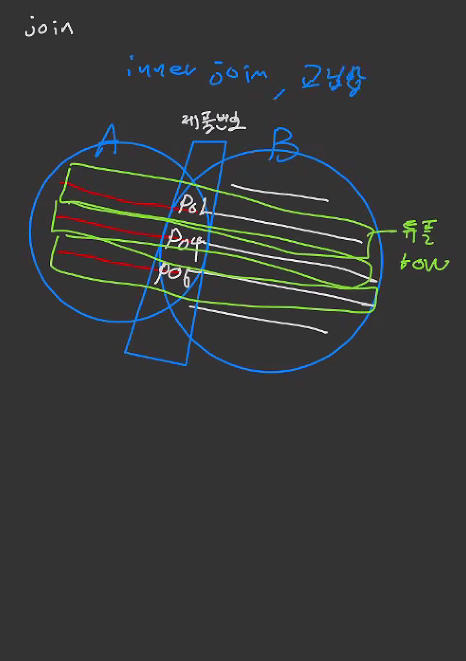 join
inner join, 교집합
제품번호
A B
P01
P04
P06
튜플
row